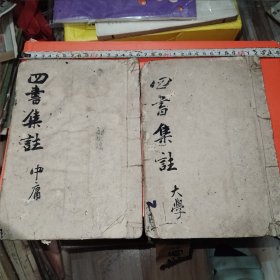 四書集註
中庸
四書集註
大學